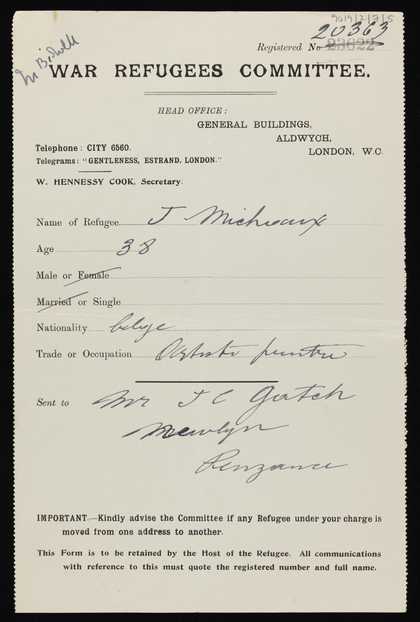 9019/2/2/5
20363
Registered No 23622
Mr Bidull
WAR REFUGEES COMMITTEE.
HEAD OFFICE:
GENERAL BUILDINGS,
ALDWYCH,
LONDON, W.C.
Telephone: CITY 6560.
Telegrams: "GENTLENESS, ESTRAND, LONDON."
W. HENNESSY COOK, Secretary.
Name of Refugee J Micheaux
Age 38
Male or Female
Married or Single
Nationality belge
Trade or Occupation Artiste peintre
Sent to Mr T C Gotch
Newlyn
Penzance
IMPORTANT—Kindly advise the Committee if any Refugee under your charge is
moved from one address to another.
This Form is to be retained by the Host of the Refugee. All communications
with reference to this must quote the registered number and full name.